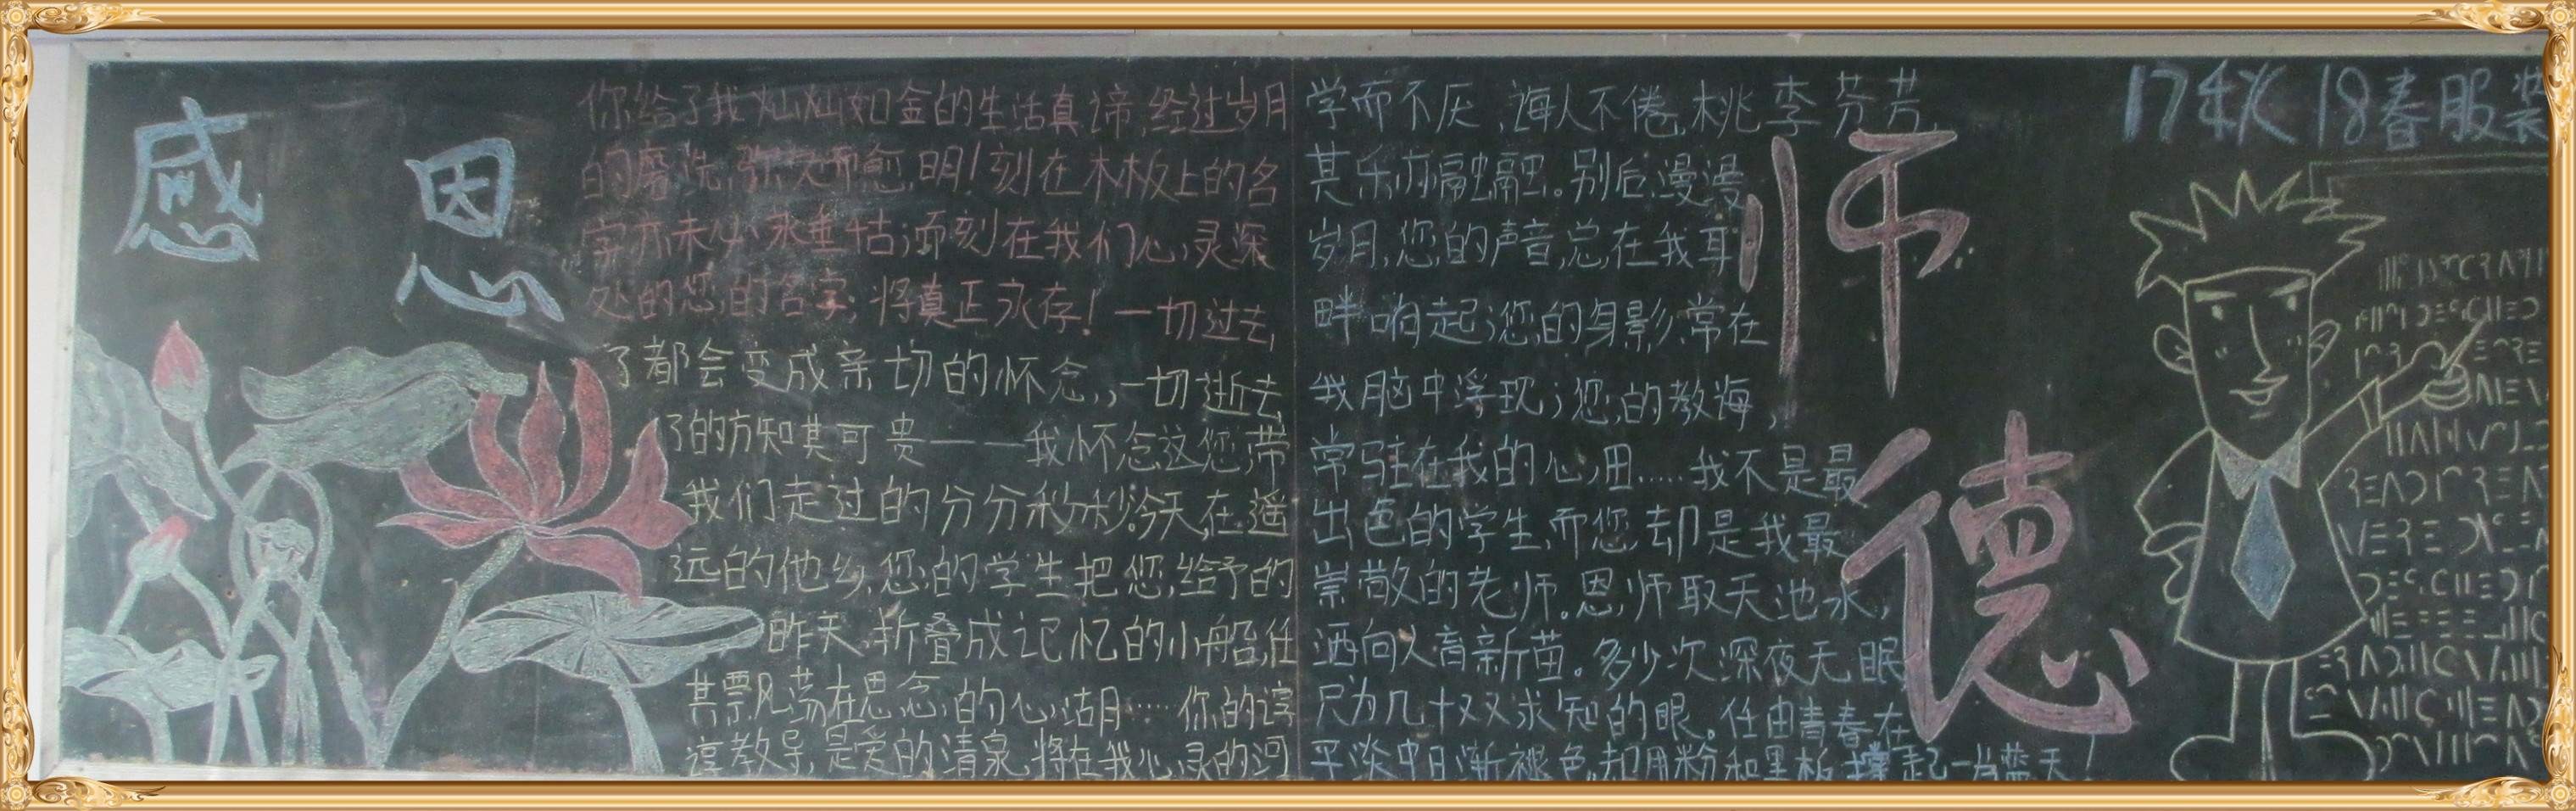 感恩
你给了我灿灿如金的生活真谛,经过岁月
的磨洗,弥久而愈明!刻在木板上的名
字亦未必永垂千古;而刻在我们心灵深
处的您的名字,将真正永存!一切过去
了都会变成亲切的怀念,一切逝去
了的方知莫可贵——我怀念这您带
我们走过的分分秒秒。今天,在遥
远的他乡,您的学生把您给予的
昨天,折叠成记忆的小船,任
其飘荡在思念的心湖……你的谆
谆教导,是爱的清泉,将在我心灵的河
学而不厌,诲人不倦,桃李芬芳,
其乐亦融融。别后,漫漫
岁月,您的声音,总在我耳
畔响起;您的身影,常在
我脑中浮现;您的教海,
常驻在我的心田……我不是最
出色的学生,而您却是我最
崇敬的老师。恩师取天池水,
洒向人育新苗。多少次深夜无眠
只为几十双求知的眼。任由青春在
平淡中日渐褪色,却用粉和黑板撑起一片蓝天!
师德
17秋 18春服装